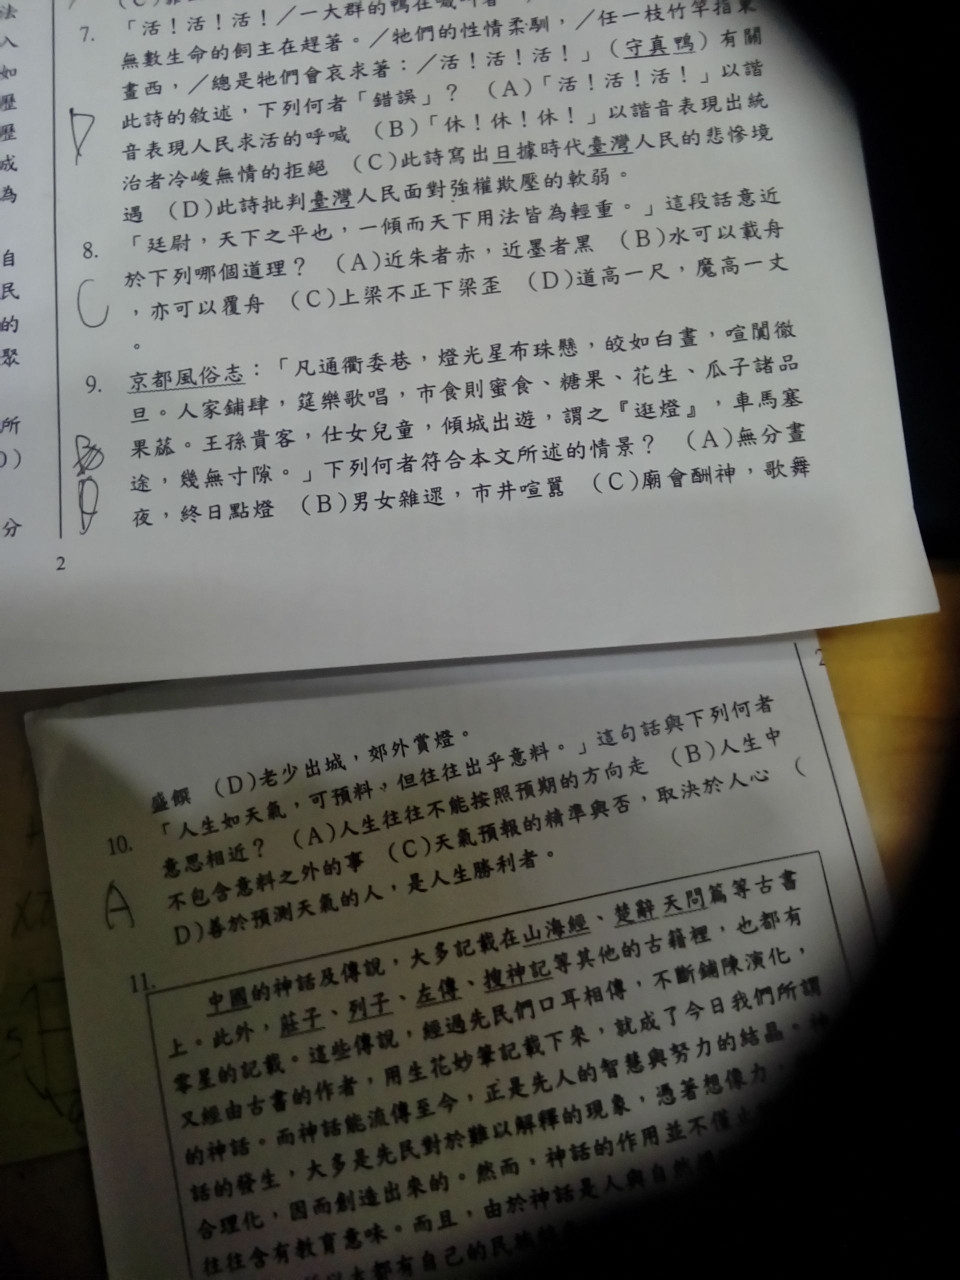 7. 「活！活！活！／一大群的鴨在
無數生命的飼主在趕著。／牠們的性情柔馴，／任一枝竹竿指東
畫西，／總是牠們會哀求著：／活！活！活！」（守真鴨）有關
此詩的敘述，下列何者「錯誤」？ (A)「活！活！活！」以諧
音表現人民求活的呼喊 (B)「休！休！休！」以諧音表現出統
治者冷峻無情的拒絕 (C)此詩寫出日據時代臺灣人民的悲慘境
遇 (D)此詩批判臺灣人民面對強權欺壓的軟弱。
D
8. 「廷尉，天下之平也，一傾而天下用法皆為輕重。」這段話意近
於下列哪個道理？ (A)近朱者赤，近墨者黑 (B)水可以載舟
，亦可以覆舟 (C)上梁不正下梁歪 (D)道高一尺，魔高一丈
。
C
9. 京都風俗志：「凡通衢委巷，燈光星布珠懸，皎如白晝，喧闐徹
旦。人家鋪肆，筵樂歌唱，市食則蜜食、糖果、花生、瓜子諸品
果蓏。王孫貴客，仕女兒童，傾城出遊，謂之『逛燈』，車馬塞
途，幾無寸隙。」下列何者符合本文所述的情景？ (A)無分晝
夜，終日點燈 (B)男女雜遝，市井喧囂 (C)廟會酬神，歌舞
D
2
法
入
如
歷
歷
成
為
自
民
的
聚
所
D)
分
盛饌 (D)老少出城，郊外賞燈。
10. 「人生如天氣，可預料，但往往出乎意料。」這句話與下列何者
意思相近？ (A)人生往往不能按照預期的方向走 (B)人生中
不包含意料之外的事 (C)天氣預報的精準與否，取決於人心 (
D)善於預測天氣的人，是人生勝利者。
A
11.
中國的神話及傳說，大多記載在山海經、楚辭天問篇等古書
上。此外，莊子、列子、左傳、搜神記等其他的古籍裡，也都有
零星的記載。這些傳說，經過先民們口耳相傳，不斷鋪陳演化，
又經由古書的作者，用生花妙筆記載下來，就成了今日我們所謂
的神話。而神話能流傳至今，正是先人的智慧與努力的結晶。神
話的發生，大多是先民對於難以解釋的現象，憑著想像力，
合理化，因而創造出來的。然而，神話的作用並不僅止
往往含有教育意味。而且，由於神話是人與自然
都有自己的民族